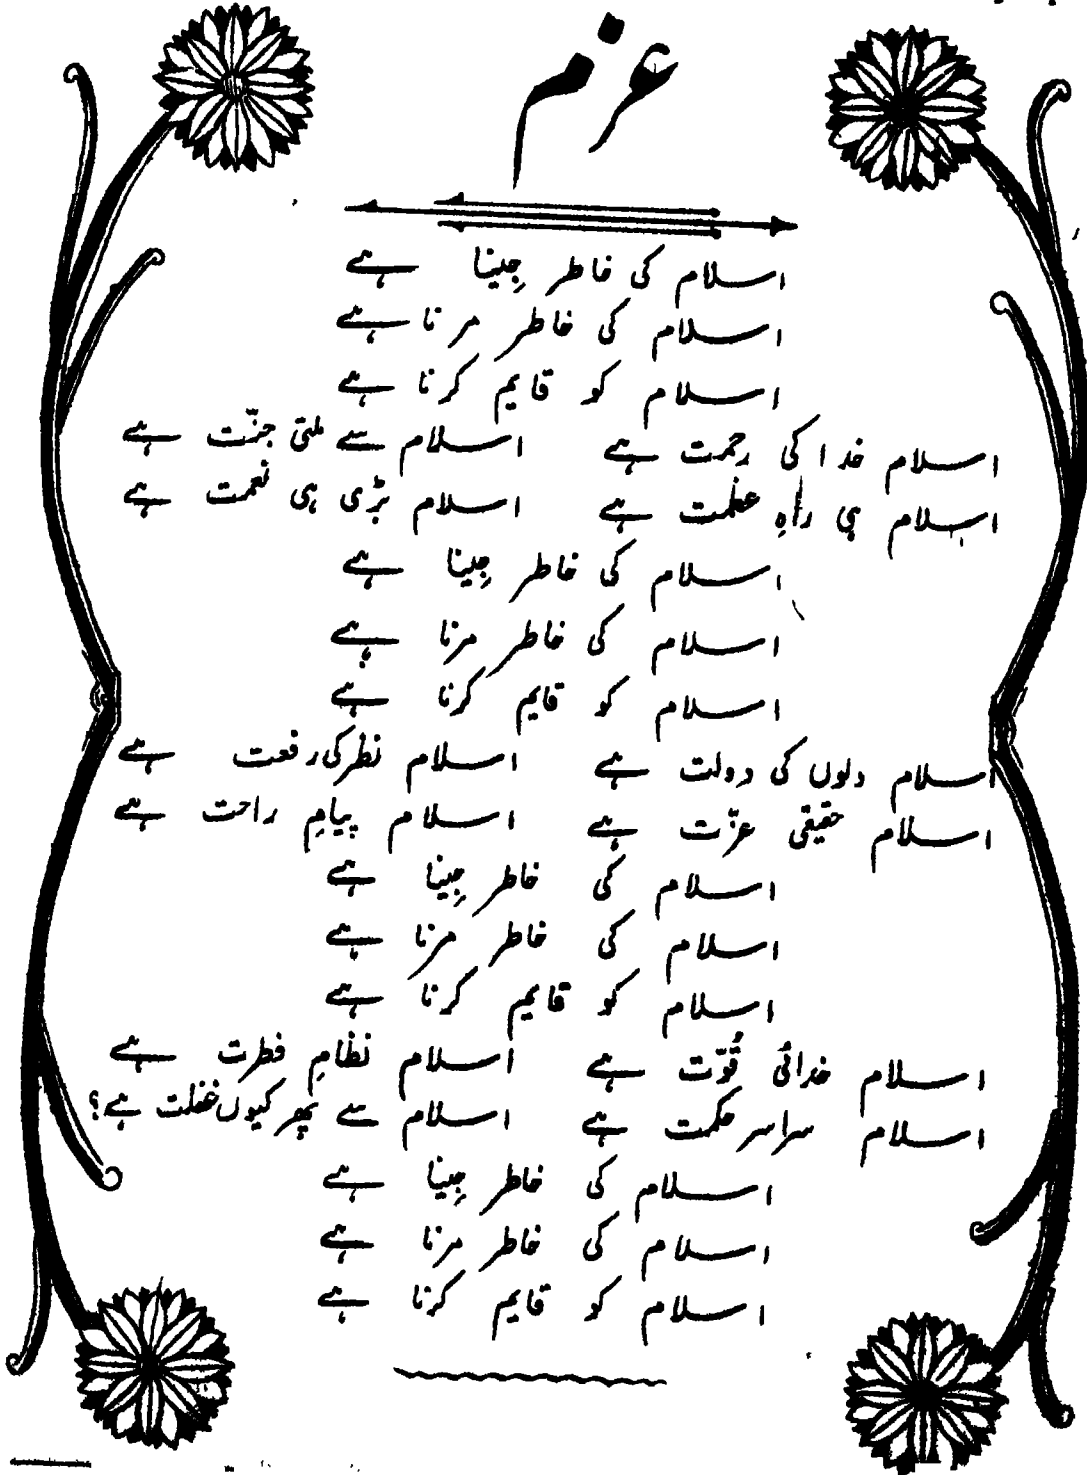 عزم
اسلام کی خاطر جِینا ہے
اسلام کی خاطر مرنا ہے
اسلام کو قایم کرنا ہے
اسلام خدا کی رحمت ہے اسلام سے ملتی جنّت ہے
اسلام ہی راہِ عظمت ہے اسلام بڑی ہی نعمت ہے
اسلام کی خاطر جِینا ہے
اسلام کی خاطر مرنا ہے
اسلام کو قایم کرنا ہے
اسلام دلوں کی دولت ہے اسلام نظر کی رفعت ہے
اسلام حقیقی عزّت ہے اسلام پیامِ راحت ہے
اسلام کی خاطر جِینا ہے
اسلام کی خاطر مرنا ہے
اسلام کو قایم کرنا ہے
اسلام خدائی قُوّت ہے اسلام نظامِ فطرت ہے
اسلام سراسر حکمت ہے اسلام سے پھر کیوں غفلت ہے؟
اسلام کی خاطر جِینا ہے
اسلام کی خاطر مرنا ہے
اسلام کو قایم کرنا ہے